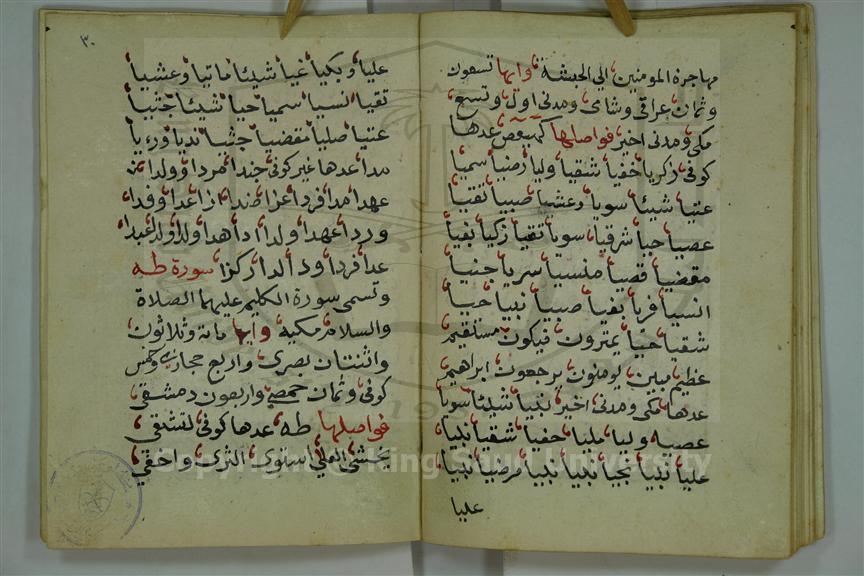 مهاجرة المومنين الي الحبشة وايها تسعون
وثمان عراقي وشامي ومدني اول وتسع
مكي ومدني اخير فواصلها كهيعص عدها
كوفي زكريا خفيا شقيا وليا رضيا سميا
عتيا شيئا سويا وعشيا صبيا تقيا
عصيا حيا شرقيا سويا تقيا زكيا بغيا
مقضيا قصيا منسيا سريا جنيا
انسيا فريا بغيا صبيا نبيا حيا
شقيا حيا يمترون فيكون مستقيم
عظيم مبين يومنون يرجعون ابراهيم
عدها مكي ومدني اخير نبيا شيئا سويا
عصيا وليا مليا حفيا شقيا نبيا
عليا نبيا نجيا نبيا نبيا مرضيا نبيا
عليا
٣٠
عليا وبكيا غيا شيئا ماتيا وعشيا
تقيا نسيا سميا حيا شيئا جثيا
عتيا صليا مقضيا جثيا نديا ورءيا
مدا عدها غير كوفي جندا مردا وولدا
عهدا مدا فردا عزا ضدا ازا عدا وفدا
وردا عهدا ولدا ادا هدا ولدا ولدا عبدا
عدا فردا ودا لدا ركزا سورة طه
وتسمى سورة الكليم عليهما الصلاة
والسلام مكية وايها مائة وثلاثون
واثنتان بصري واربع حجازي وخمس
كوفي وثمان حمصي واربعون دمشقي
فواصلها طه عدها كوفي لتشقى
يخشى العلى استوى الثرى واخفى
Copyright © King Saud University